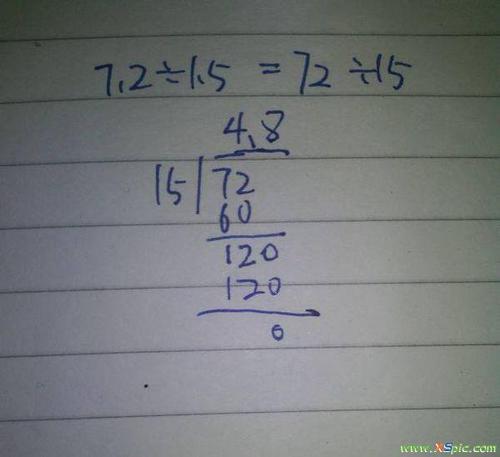 7.2÷1.5 = 72÷15
4.8
15 72
60
120
120
0
www.XSpic.com